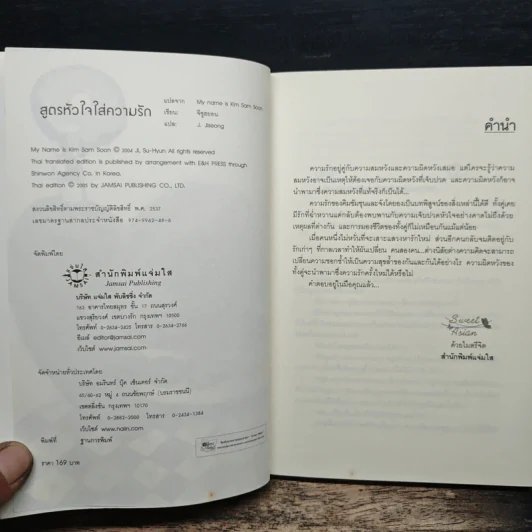 สูตรหัวใจใส่ความรัก
แปลจาก My name is Kim Sam Soon
เขียน จีซูฮยอน
แปล J. Jiseong
My Name is Kim Sam Soon © 2004 Ji, Su-Hyun All rights reserved
Thai translated edition is published by arrangement with E&H PRESS through
Shinwon Agency Co. in Korea.
Thai edition © 2005 by JAMSAI PUBLISHING CO., LTD.
สงวนลิขสิทธิ์ตามพระราชบัญญัติลิขสิทธิ์ พ.ศ. 2537
เลขมาตรฐานสากลประจำหนังสือ
จัดพิมพ์โดย
JAMSAI
สำนักพิมพ์แจ่มใส
Jamsai Publishing
บริษัท แจ่มใส พับลิชชิ่ง จำกัด
160 อาคารไทยสมุทร ชั้น 17 ถนนสุรวงศ์
แขวงสุริยวงศ์ เขตบางรัก กรุงเทพฯ 10500
โทรศัพท์ 0-2634-2425 โทรสาร 0-2634-2766
อีเมล์ editor@jamsai.com
เว็บไซต์ www.jamsai.com
จัดจำหน่ายทั่วประเทศโดย
บริษัท อมรินทร์ บุ๊ค เซ็นเตอร์ จำกัด
65/60-62 หมู่ 4 ถนนชัยพฤกษ์ (บรมราชชนนี)
เขตตลิ่งชัน กรุงเทพฯ 10170
โทรศัพท์ 0-2882-2000 โทรสาร 0-2434-1384
เว็บไซต์ www.naiin.com
พิมพ์ที่ ฐานการพิมพ์
ราคา 169 บาท
คำนำ
ความรักอยู่คู่กับความสมหวังและความผิดหวังเสมอ แต่ใครจะรู้ว่าความ
สมหวังอาจเป็นเหตุให้ต้องเจอกับความผิดหวังที่เจ็บปวด และความผิดหวังก็อาจ
นำพามาซึ่งความสมหวังที่แท้จริงก็เป็นได้...
ความรักของคิมซัมซุนและจังโดยองเป็นบทพิสูจน์ของสิ่งเหล่านี้ได้ดี ทั้งคู่เคย
มีรักที่ฉ่ำหวานแต่กลับต้องพบพานกับความเจ็บปวดหัวใจอย่างคาดไม่ถึงด้วย
เหตุผลที่ต่างกัน และการมองชีวิตของทั้งคู่ก็ไม่เหมือนกันแม้แต่น้อย
เมื่อคนหนึ่งไม่หวั่นที่จะเสาะแสวงหารักใหม่ ส่วนอีกคนกลับจมติดอยู่กับ
รักเก่าๆ ที่กาลเวลาทำให้ผันเปลี่ยน คนสองคน...ต่างนิสัยต่างความคิดจะสามารถ
เปลี่ยนความชอกช้ำให้เป็นความสุขล้ำของกันและกันได้อย่างไร ความผิดหวังของ
ทั้งคู่จะนำพามาซึ่งความรักครั้งใหม่ได้หรือไม่
คำตอบอยู่ในมือคุณแล้ว...
Sweet
Asian
ด้วยไมตรีจิต
สำนักพิมพ์แจ่มใส